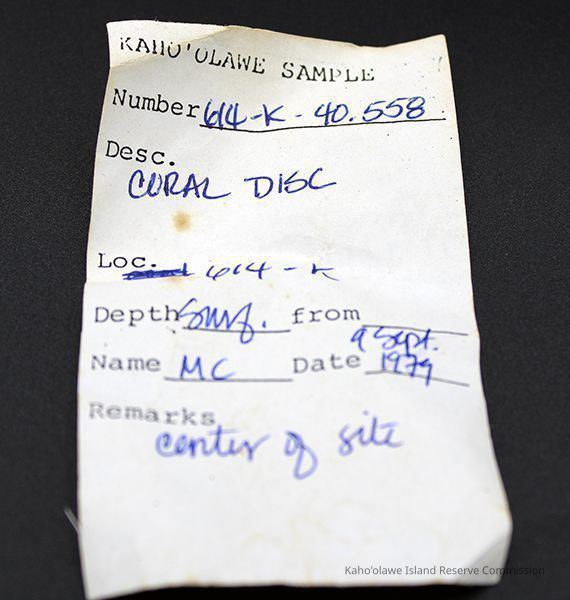 KAHO'OLAWE SAMPLE
Number 614-K-40.558
Desc.
CORAL DISC
Loc. 614-K
Depth Surf. from
Name MC Date 9 Sept. 1979
Remarks
center of site
Kaho'olawe Island Reserve Commission